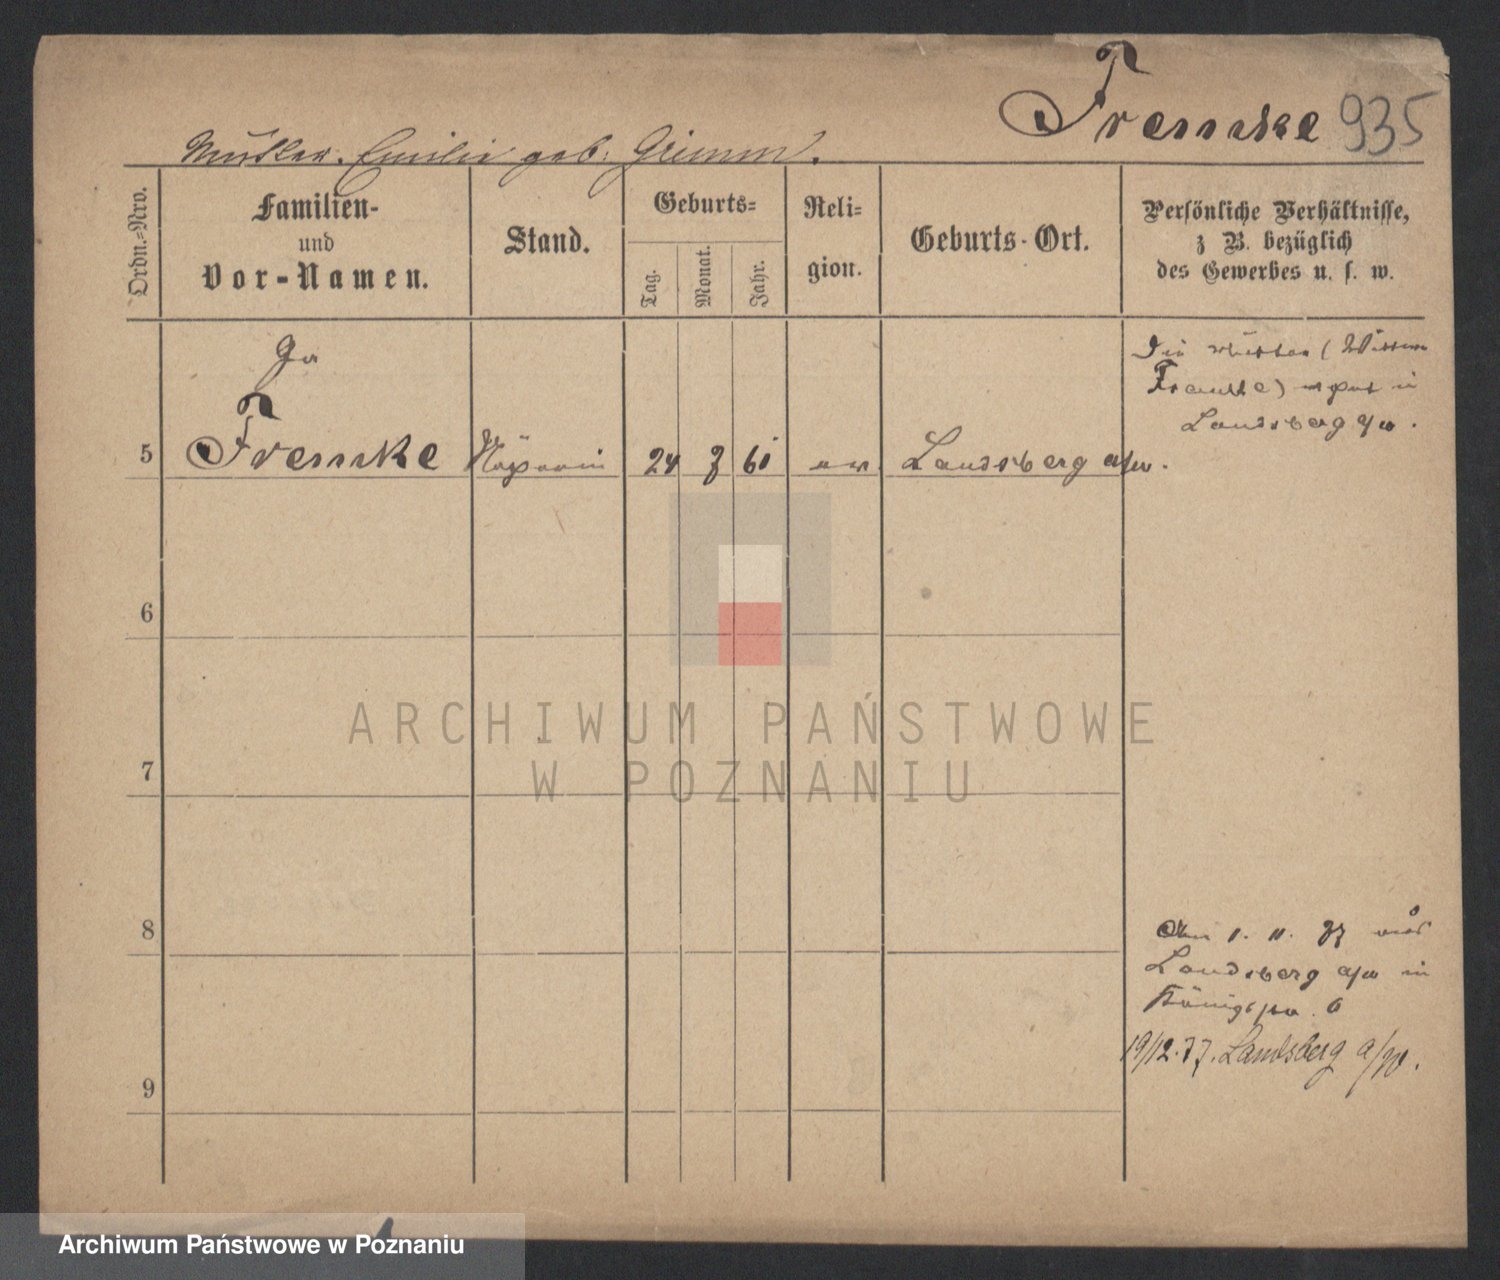 Fremske 935
Mutter. Emilie geb: Grimm.
Ordn.=Nro.
Familien-
und
Vor-Namen.
Stand.
Geburts=
Tag.
Monat.
Jahr.
Reli=
gion.
Geburts-Ort.
Persönliche Verhältnisse,
z B. bezüglich
des Gewerbes u. s. w.
Die Mutter (Wittwe
) in
Landsberg a/w.
5 Fremske Näherin 24 7 61 ev. Landsberg a/w.
6
ARCHIWUM PAŃSTWOWE
W POZNANIU
7
8
Am 1. 11. 77 aus
Landsberg a/w in
Königstr. 6
19/12.77. Landsberg a/W.
9
Archiwum Państwowe w Poznaniu